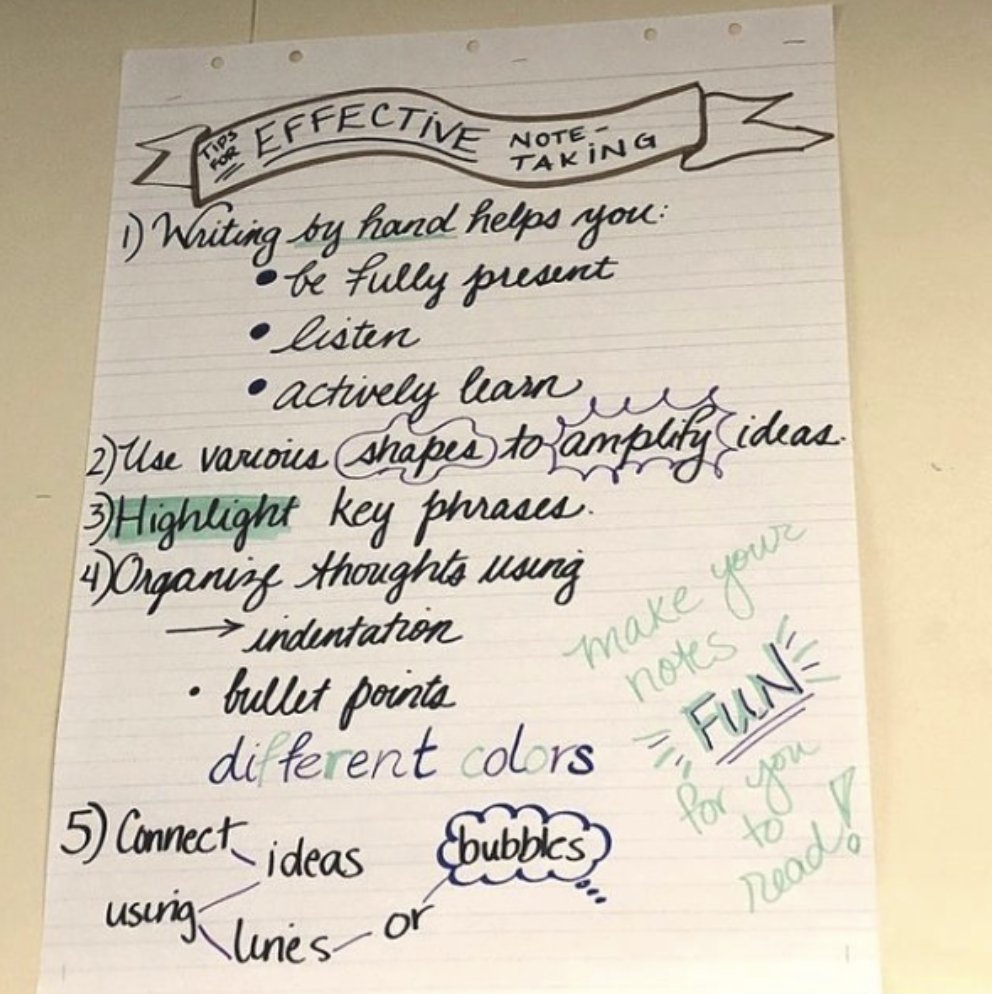 TIPS FOR EFFECTIVE NOTE-TAKING
1) Writing by hand helps you:
• be fully present
• listen
• actively learn
2) Use various shapes to amplify ideas.
3) Highlight key phrases.
4) Organize thoughts using
→ indentation
• bullet points
different colors
5) Connect ideas
using lines or bubbles
make your
notes
FUN
for you
to
read!